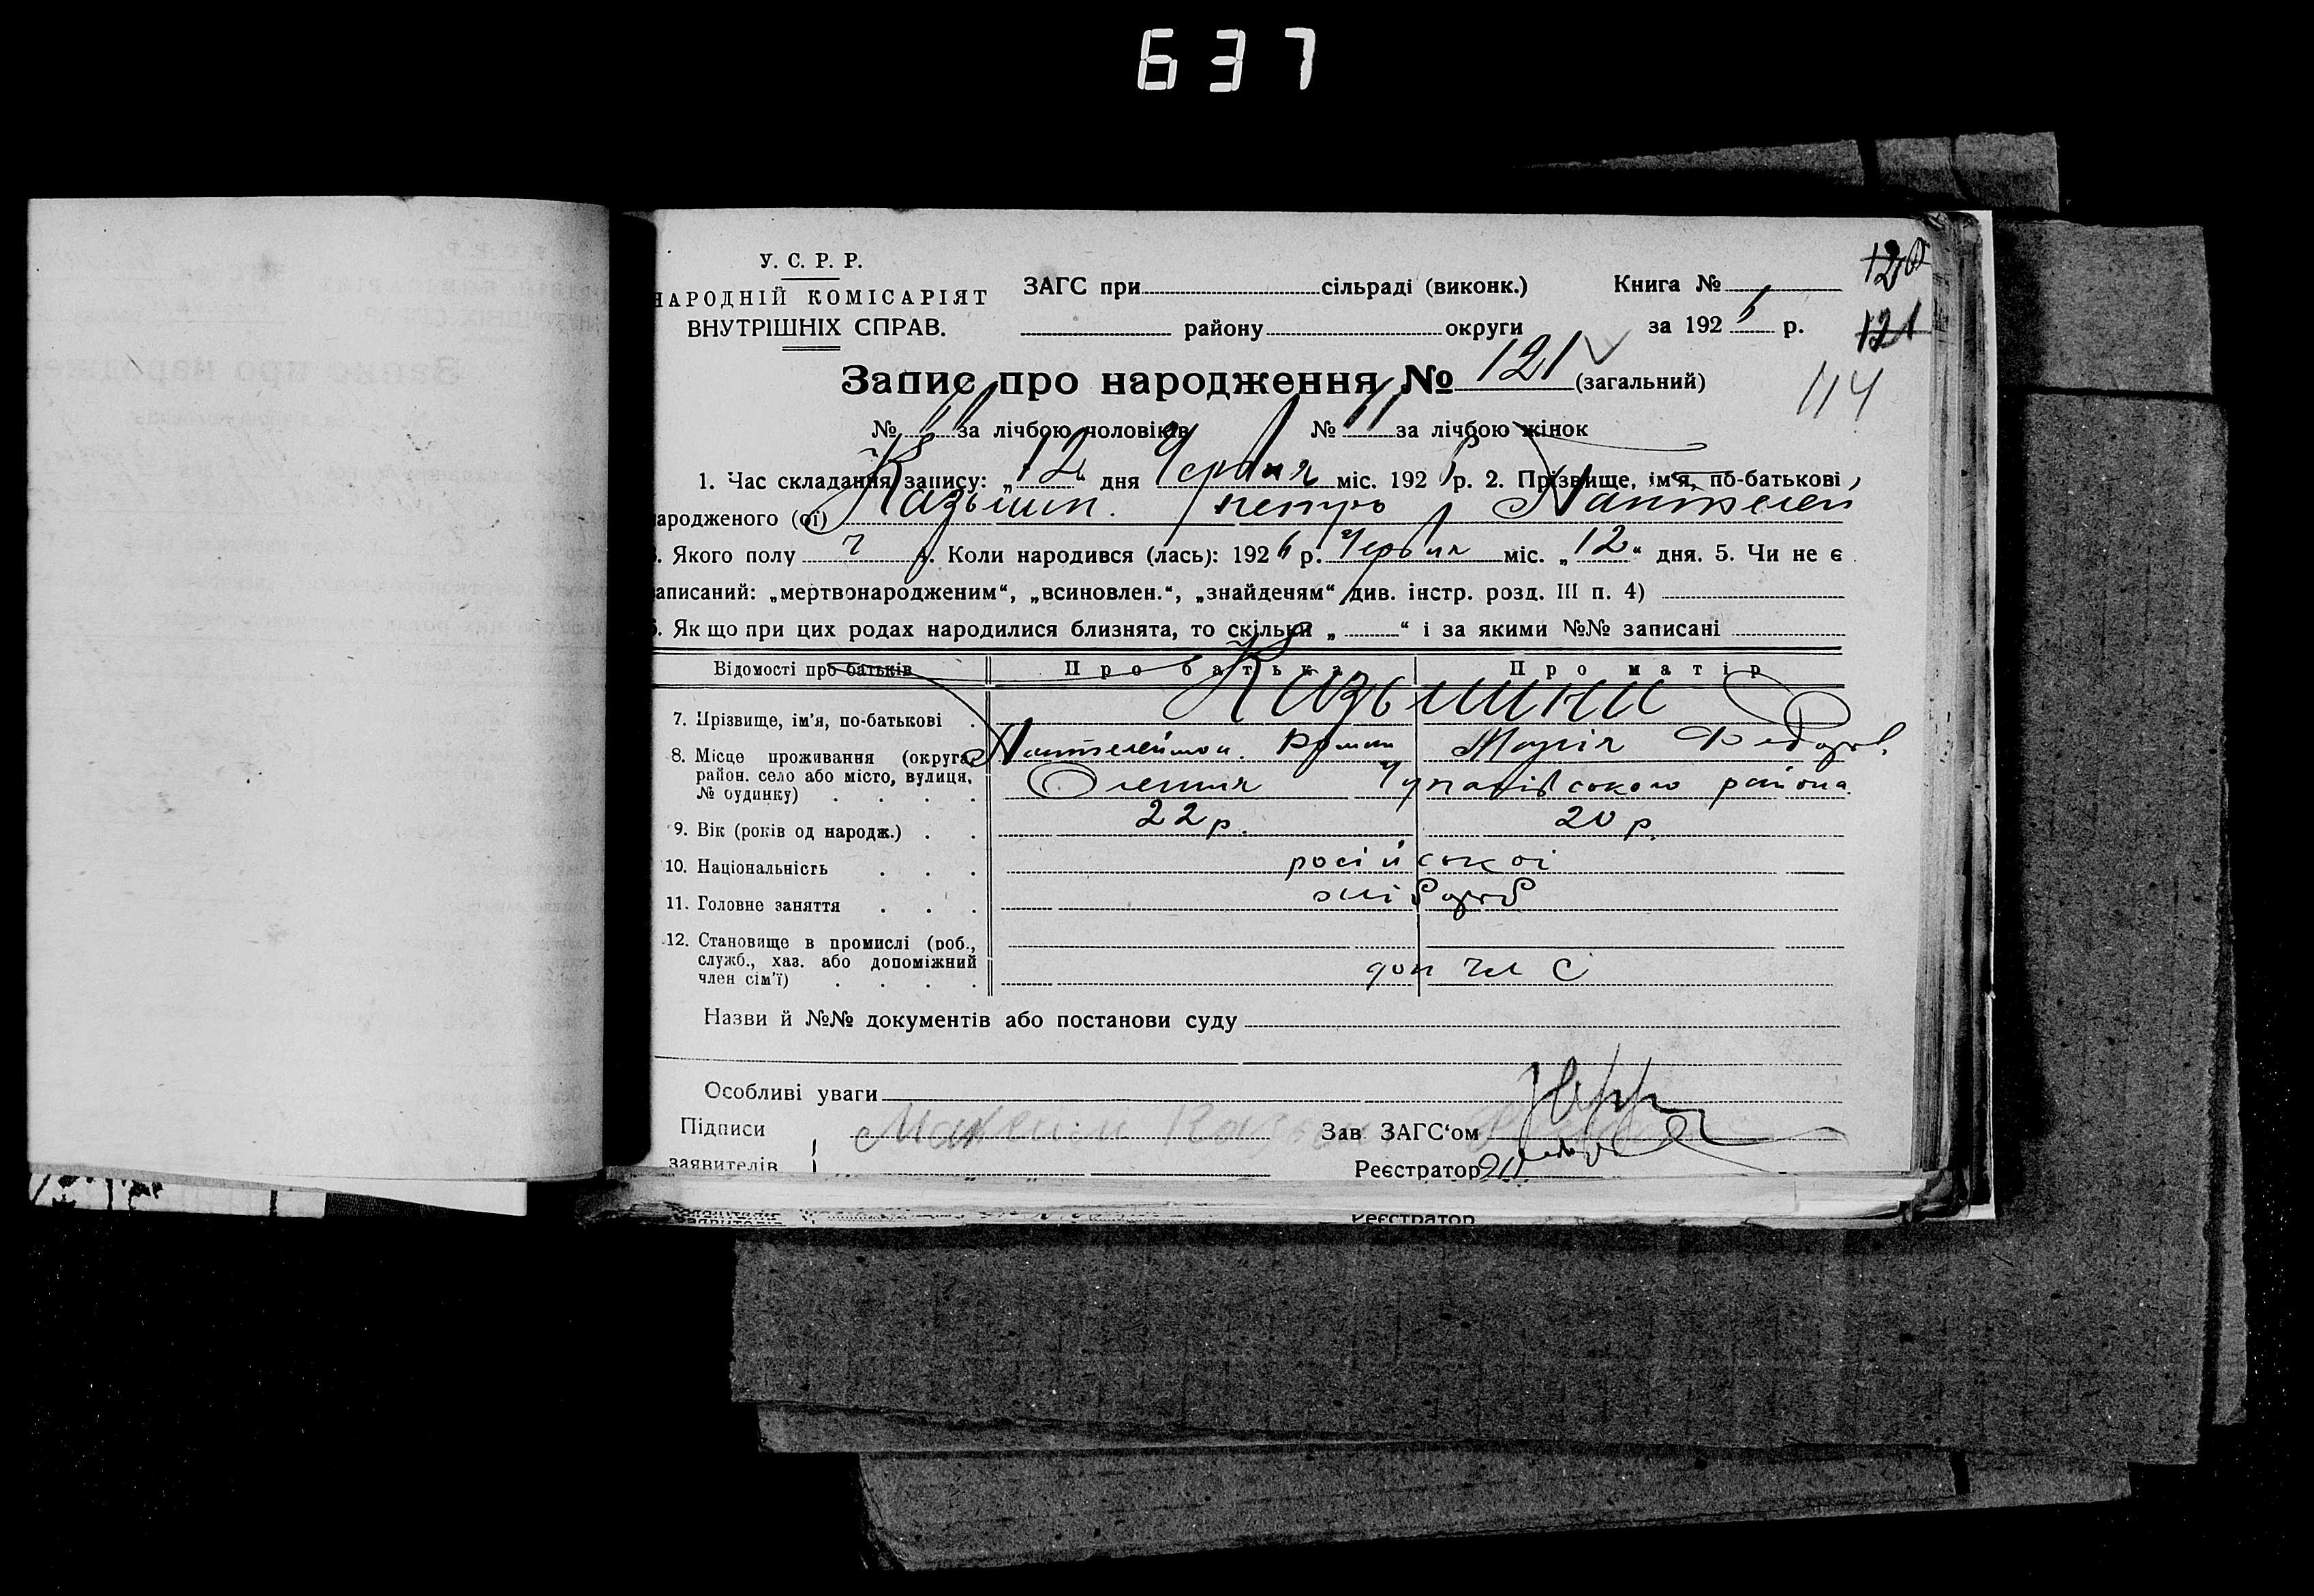 637
У. С. Р. Р.
НАРОДНІЙ КОМІСАРІЯТ
ВНУТРІШНІХ СПРАВ.
ЗАГС при сільраді (виконк.)
району округи
Книга №
за 1926 р.
120
121
114
Запис про народження № 121 (загальний)
№ за лічбою чоловіків № за лічбою жінок
1. Час складання запису: „12“ дня Червня міс. 1926 р. 2. Прізвище, ім'я, по-батькові
ародженого (ої) Казьмин. Петро Пантелей
3. Якого полу ч 4. Коли народився (лась): 1926 р. Червня міс. „12“ дня. 5. Чи не є
аписаний: „мертвонародженим“, „всиновлен.“, „знайденям“ див. інстр. розд. III п. 4)
6. Якщо при цих родах народилися близнята, то скільки „ “ і за якими №№ записані
Відомості про батьків Про батька Про матір
Казьмини
7. Прізвище, ім'я, по-батькові
Пантелеймон. Марія Федоров.
8. Місце проживання (округа, район. село або місто, вулиця, № будинку)
Чупахівського района
9. Вік (років од народж.) 22 р. 20 р.
10. Національність російської
11. Головне заняття хлібороб
12. Становище в промислі (роб., служб., хаз. або допоміжний член сім'ї) доп чл С
Назви й №№ документів або постанови суду
Особливі уваги
Підписи
заявителів
Зав ЗАГС'ом
Реєстратор
заявителів
Реєстратор